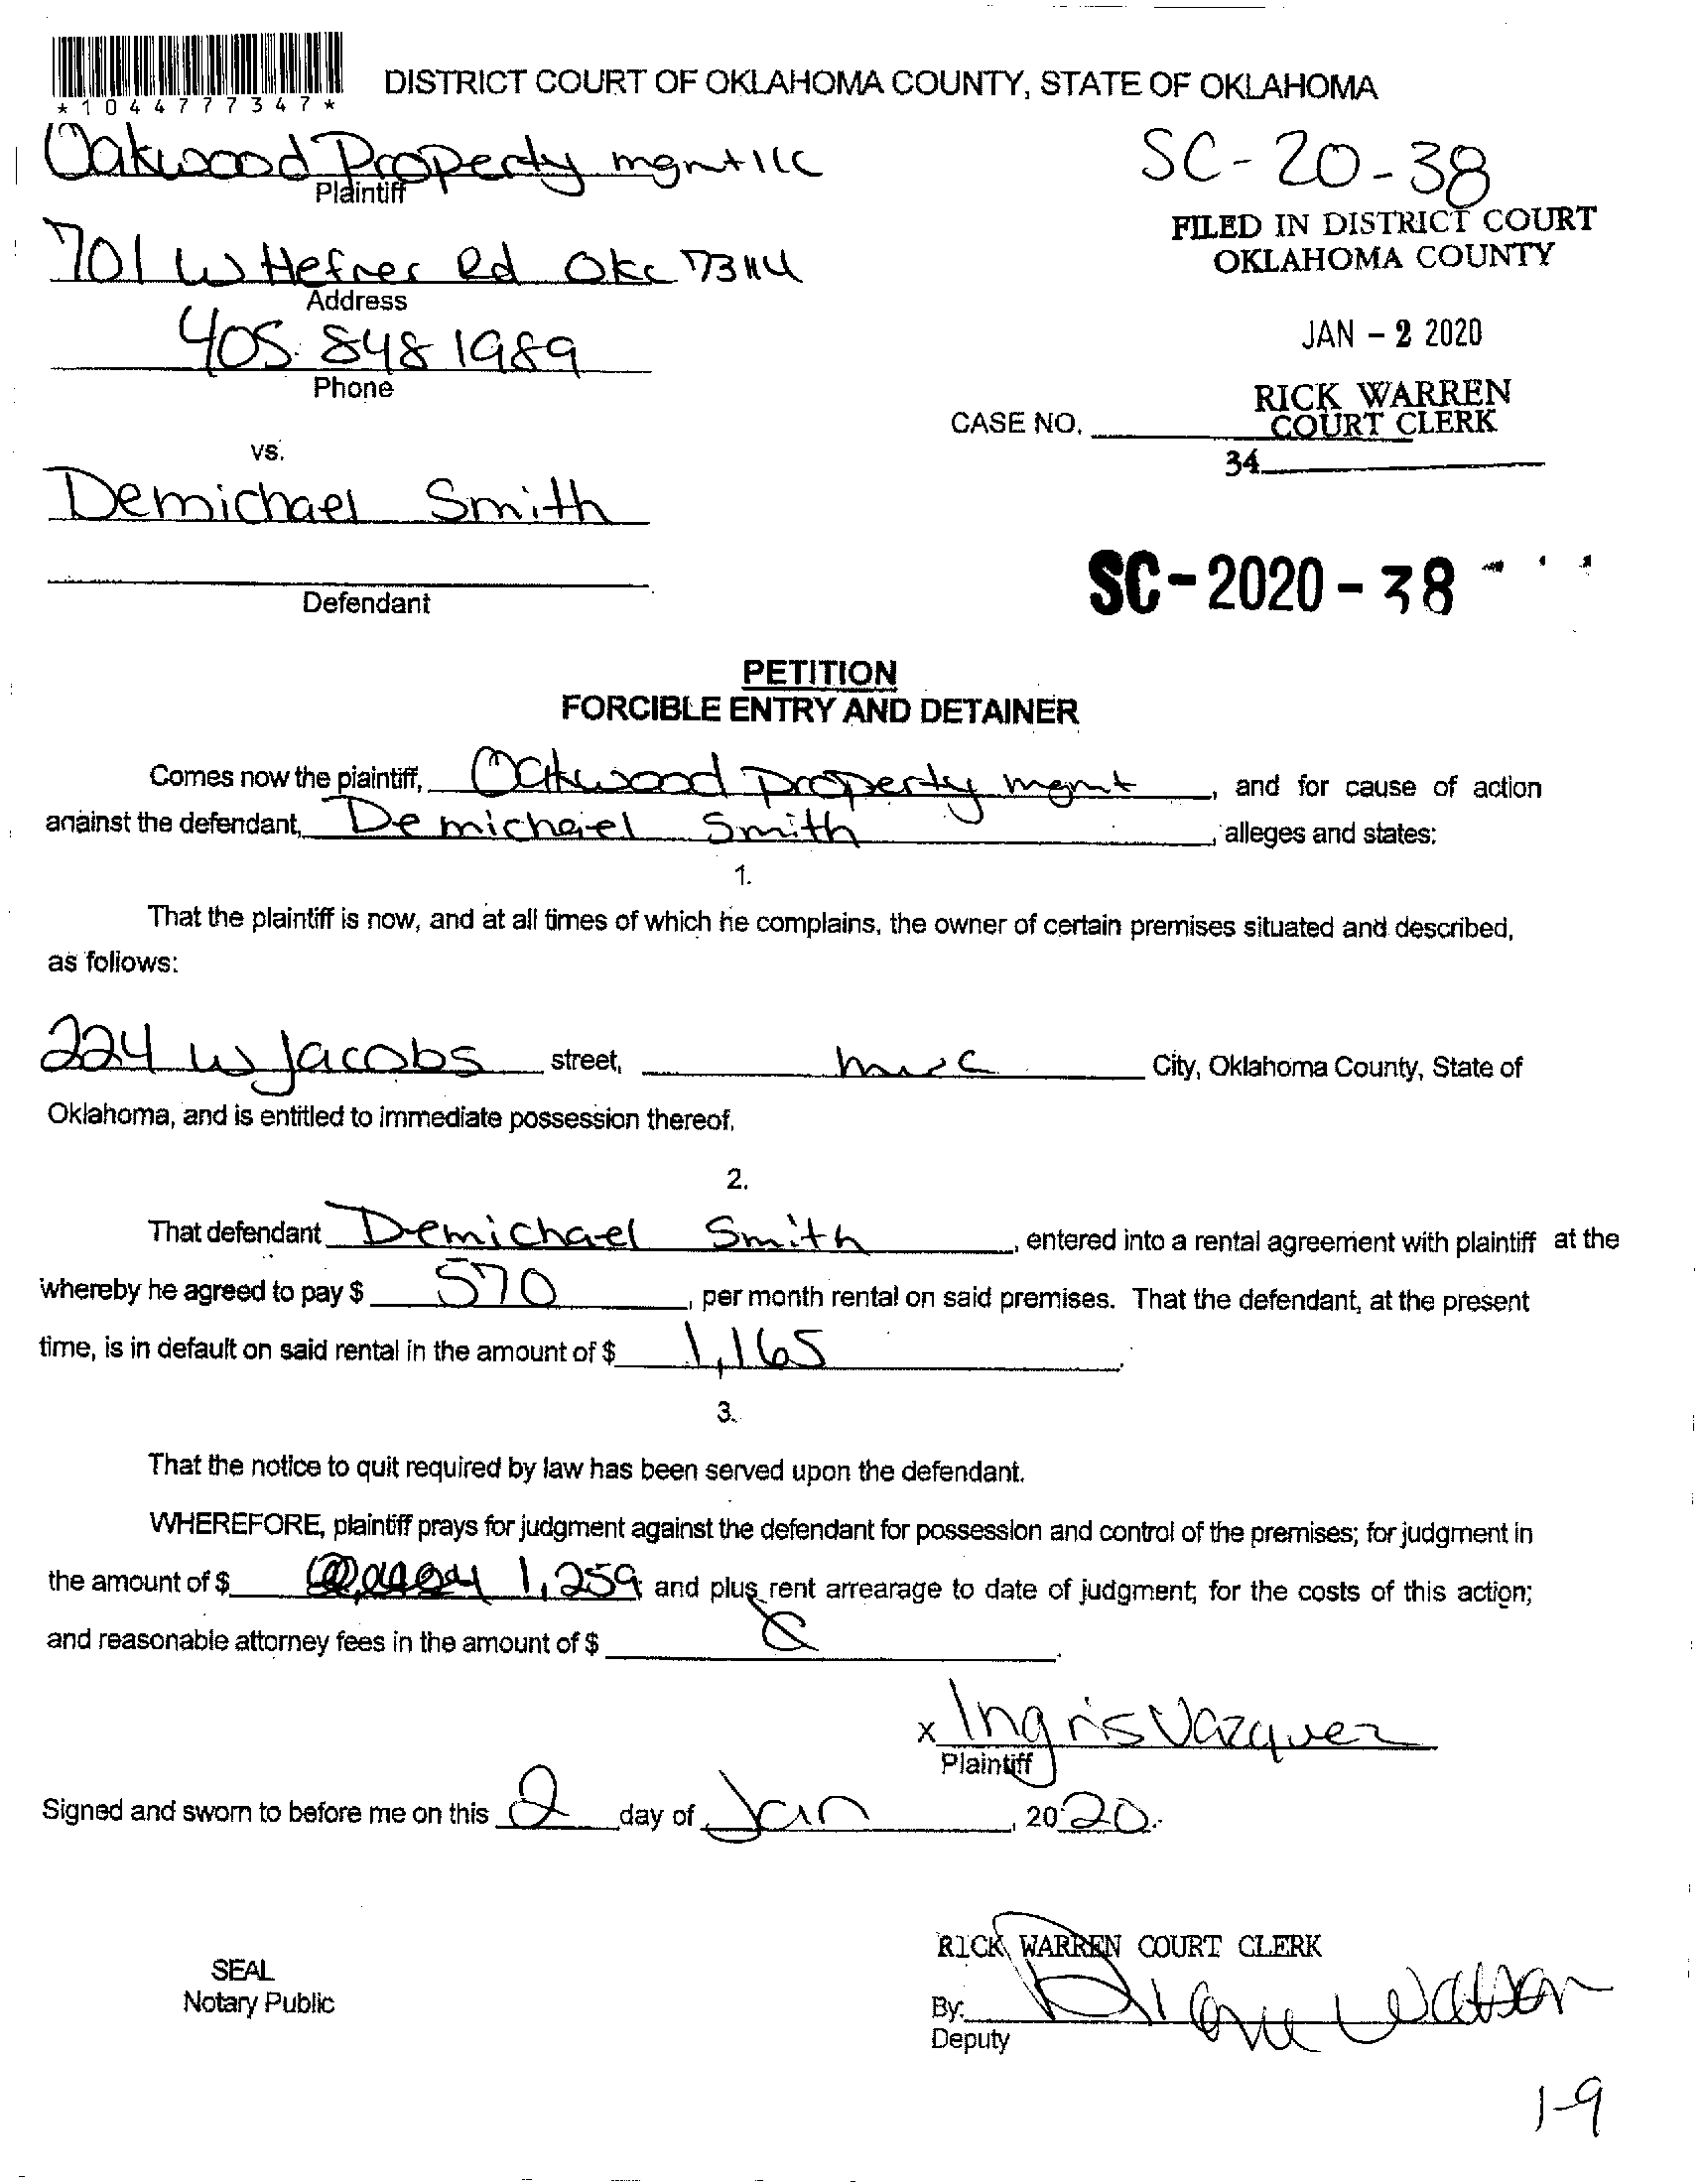 *1044777347*
DISTRICT COURT OF OKLAHOMA COUNTY, STATE OF OKLAHOMA
Oakwood Property mgmt llc
Plaintiff
SC-20-38
FILED IN DISTRICT COURT
OKLAHOMA COUNTY
701 W Hefner Rd Okc 73114
Address
JAN - 2 2020
405. 848 1989
Phone
RICK WARREN
COURT CLERK
CASE NO.
34
vs.
Demichael Smith
Defendant
SC-2020-38
PETITION
FORCIBLE ENTRY AND DETAINER
Comes now the plaintiff, Oakwood property mgmt, and for cause of action
against the defendant, Demichael Smith, alleges and states:
1.
That the plaintiff is now, and at all times of which he complains, the owner of certain premises situated and described,
as follows:
224 W Jacobs street, mwc City, Oklahoma County, State of
Oklahoma, and is entitled to immediate possession thereof.
2.
That defendant Demichael Smith, entered into a rental agreement with plaintiff at the
whereby he agreed to pay $ 570, per month rental on said premises. That the defendant, at the present
time, is in default on said rental in the amount of $ 1,165.
3.
That the notice to quit required by law has been served upon the defendant.
WHEREFORE, plaintiff prays for judgment against the defendant for possession and control of the premises; for judgment in
the amount of $ 1,259 and plus rent arrearage to date of judgment; for the costs of this action;
and reasonable attorney fees in the amount of $
x Ingris Vazquez
Plaintiff
Signed and sworn to before me on this 2 day of Jan, 2020.
RICK WARREN COURT CLERK
SEAL
Notary Public
By: Diane Watson
Deputy
1-9